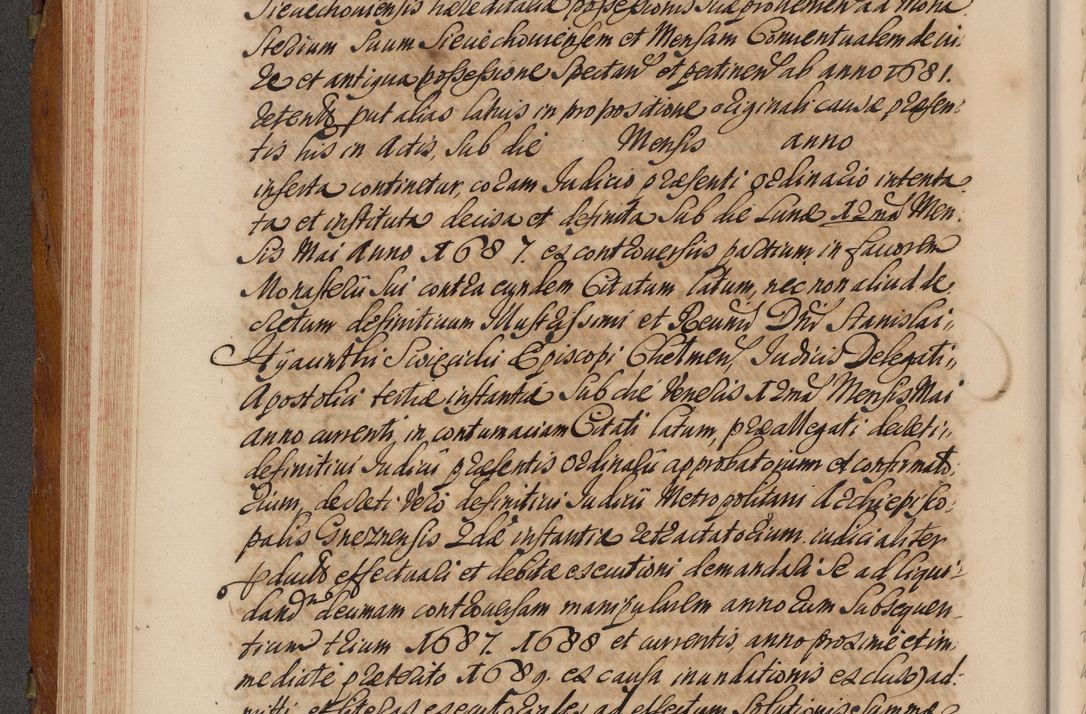 Sieciechoviensis hæreditatia possessionis suæ provenien ad Mona
sterium Suum Sieciechoviensem et Mensam Conventualem de iu
re et antiqua possessione Spectan et pertinen ab anno 1681.
detent put alias latius in propositione originali causæ præsen
tis his in Actis, Sub die Mensis anno
inserta continetur, coram Iudicio præsenti ordinario intenta
ta et instituta decisa et definita Sub die Lunæ 12ma Men
sis Mai Anno 1687. ex controversiis partium, in favorem
Monasterii Sui contra eundem Citatum latum, nec non aliud de
cretum definitivum Illustrissimi et Reverend Dni Stanislai
Hyacinthi Swięcicki Episcopi Chelmen, Iudicis Delegati
Apostolici tertiæ instantiæ Sub die Veneris 12ma Mensis Mai
anno currenti, in contumaciam Citati latum, præallegati decreti
definitivi Iudicii præsentis ordinarii approbatorium et confirmato
rium, decreti vero definitivi Iudicii Metropolitani Archiepisco
palis Gneznensis 2dæ instantiæ retractatorium iudicialiter
pduct effectuali et debitæ executioni demandari Se ad liqui
dand decimam controversam manipularem annorum Subsequen
tium trium 1687. 1688 et currentis, anno proxime et im
mediate præterito 1689. ex causa inundationis excluso) ad
mitti, et literas executoriales ad effectum Solutionis Summæ